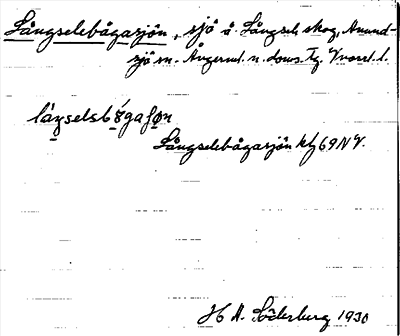 Långselebågasjön, sjö å Långsele skog, Anund-
sjö sn. Ångerml. n. doms. Tg. Vnorrl. l.
láŋselsbǫ́gaʃøn
Långselebågasjön ktg 69 N V.
H A. Söderberg 1930